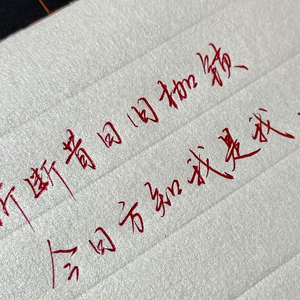 斩断昔日旧枷锁
今日方知我是我